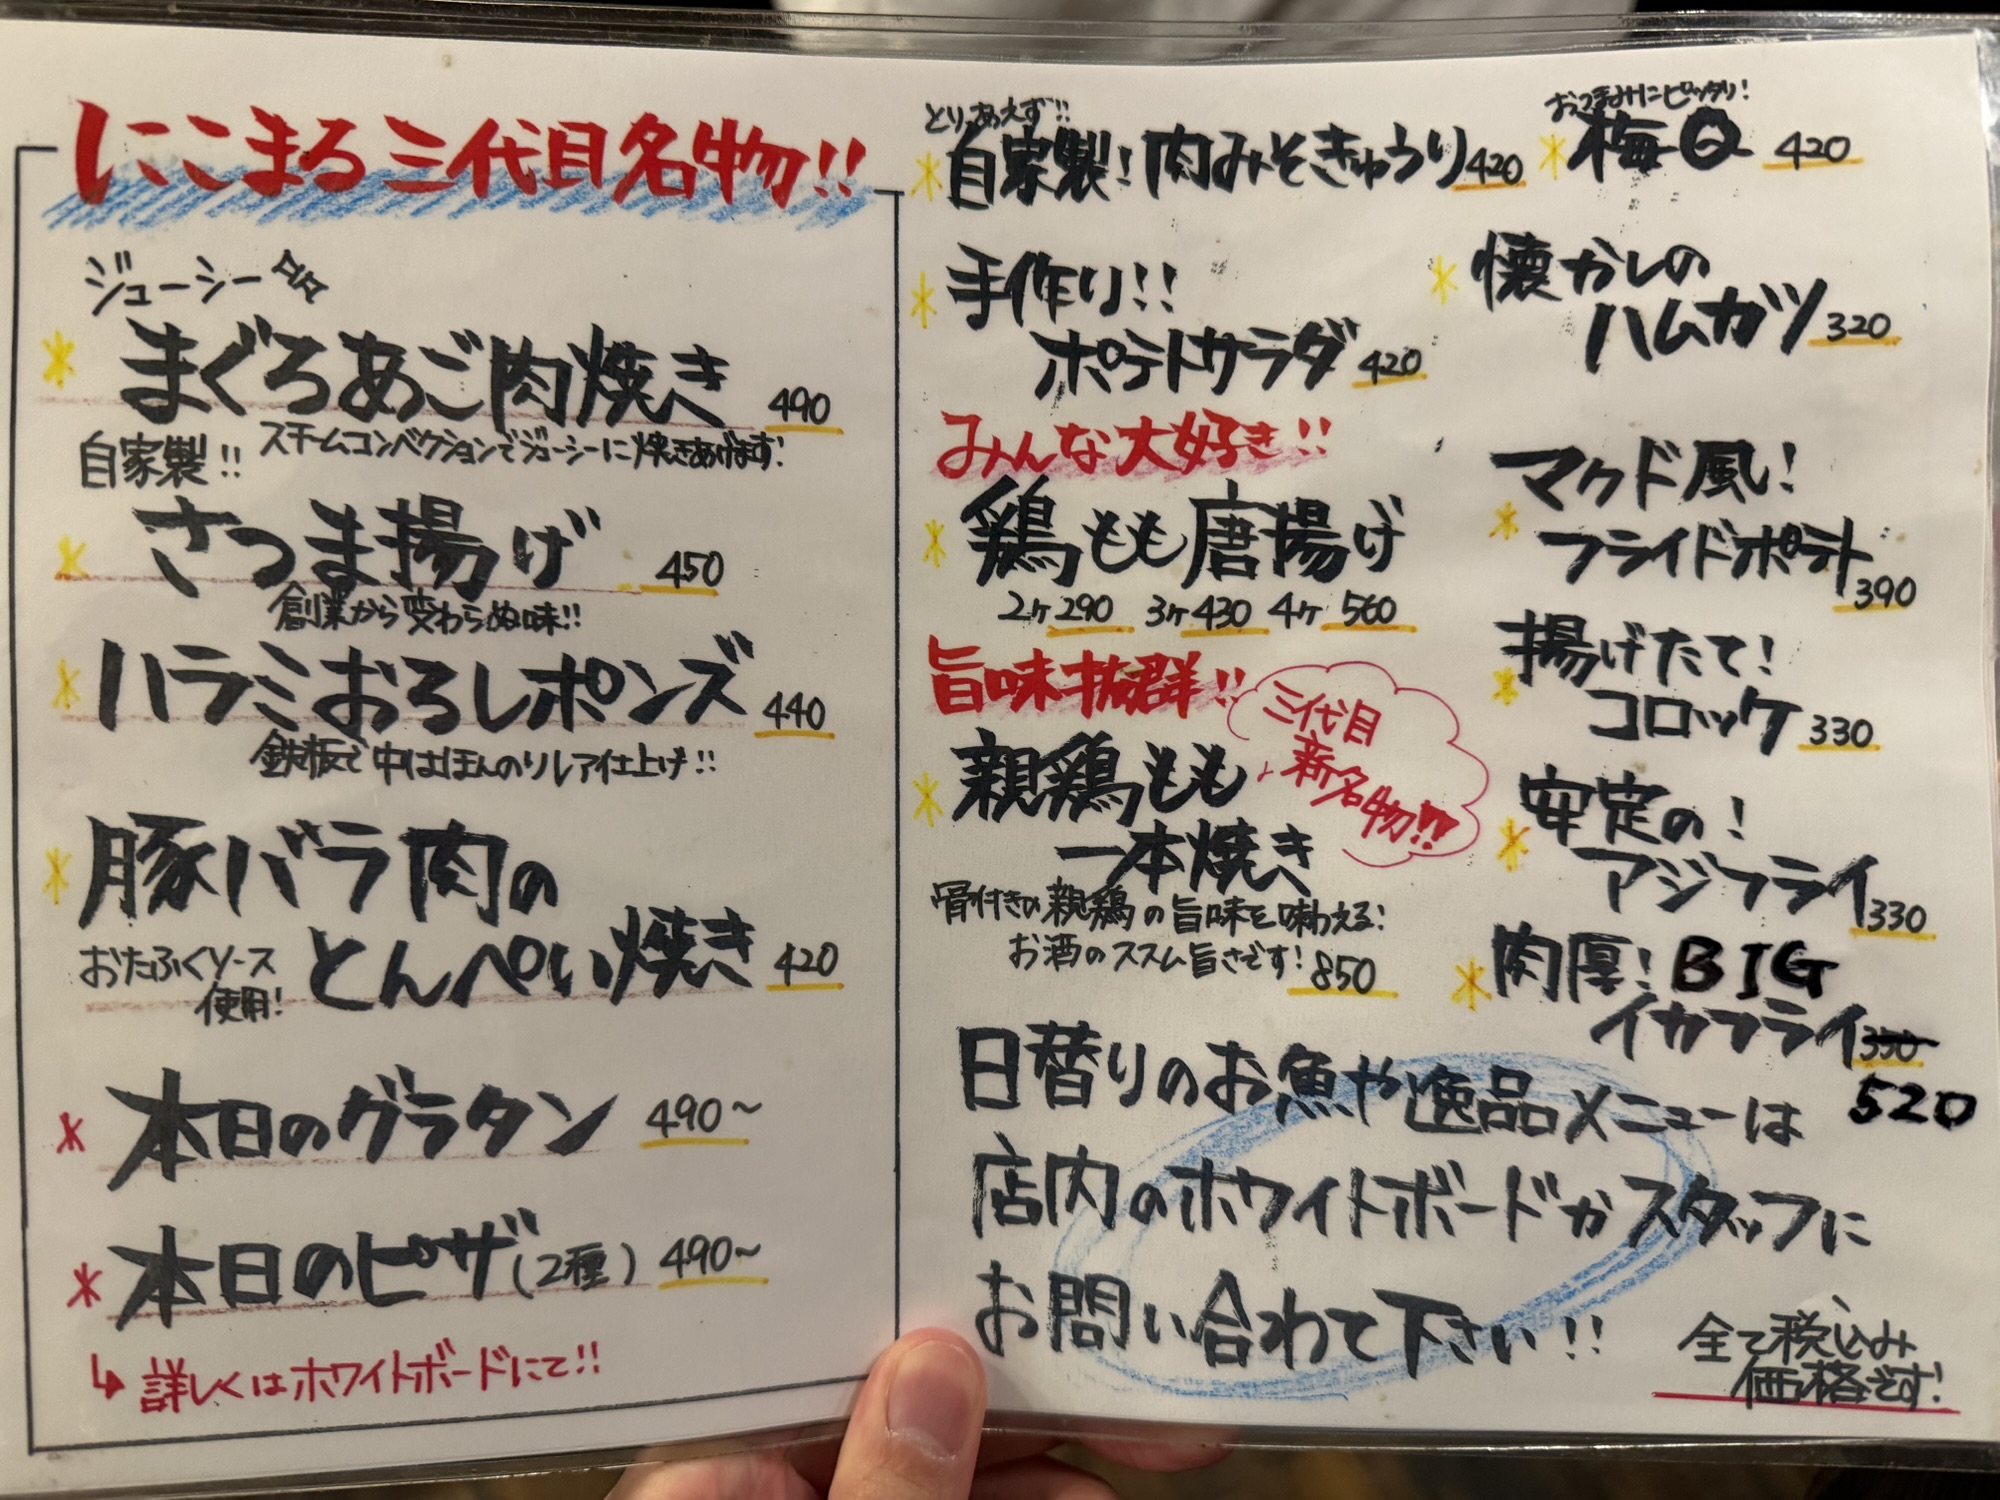 にこまる三代目名物!!
ジューシー
まぐろあご肉焼き 490
スチームコンベクションでジューシーに焼きあげます!
自家製!!
さつま揚げ 450
創業から変わらぬ味!!
ハラミおろしポンズ 440
鉄板で中はほんのりレア仕上げ!!
豚バラ肉の
とんぺい焼き 420
おたふくソース
使用!
本日のグラタン 490~
本日のピザ(2種) 490~
↳詳しくはホワイトボードにて!!
とりあえず!!
自家製!肉みそきゅうり 420
手作り!!
ポテトサラダ 420
みんな大好き!!
鶏もも唐揚げ
2ヶ 290 3ヶ 430 4ヶ 560
旨味抜群!!
三代目
新名物!!
親鶏もも
一本焼き
骨付きの親鶏の旨味を味わえる!
お酒のススム旨さです! 850
おつまみにピッタリ!
梅Q 420
懐かしの
ハムカツ 320
マクド風!
フライドポテト 390
揚げたて!
コロッケ 330
安定の!
アジフライ 330
肉厚!BIG
イカフライ 350
520
日替りのお魚や逸品メニューは
店内のホワイトボードかスタッフに
お問い合わて下さい!!
全て税込み
価格です!